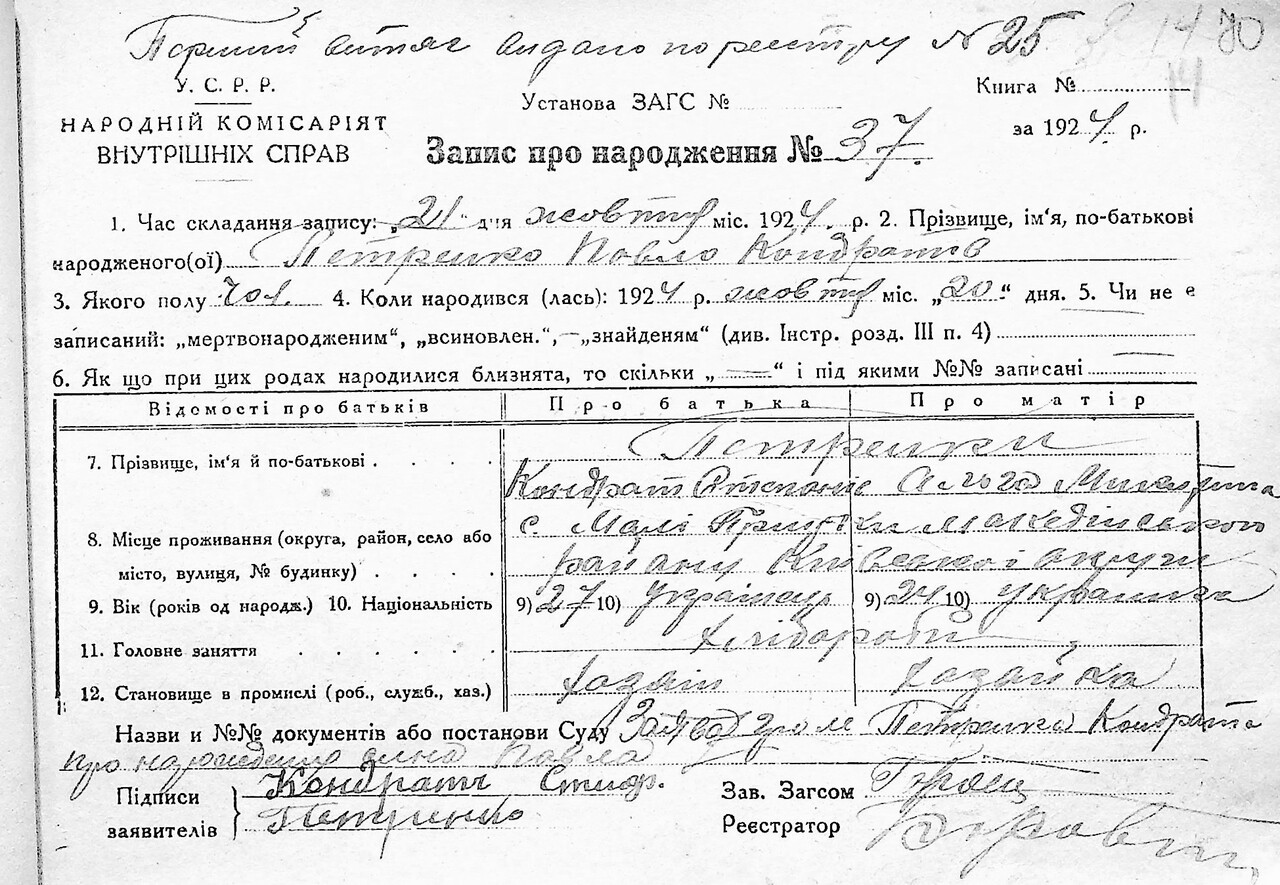 Перший витяг видано по реєстру № 25
14 70
14
У. С. Р. Р.
НАРОДНІЙ КОМІСАРІЯТ
ВНУТРІШНІХ СПРАВ
Установа ЗАГС №
Книга №
за 1924 р.
Запис про народження № 37.
1. Час складання запису: „21" дня жовтня міс. 1924. р. 2. Прізвище, ім'я, по-батькові
народженого(ої) Петренко Павло Кондратів
3. Якого полу чол. 4. Коли народився (лась): 1924 р. жовтня міс. „20" дня. 5. Чи не є
записаний: „мертвонародженим", „всиновлен.", — „знайденям" (див. Інстр. розд. III п. 4)
6. Як що при цих родах народилися близнята, то скільки „ — " і під якими №№ записані —
Відомості про батьків Про батька Про матір
7. Прізвище, ім'я й по-батькові . . . . Петренки
Кондрат
8. Місце проживання (округа, район, село або
місто, вулиця, № будинку) . . . .
с. Малі Прицьки
району Київської округи
9. Вік (років од народж.) 10. Національність 9) 27 10) Українець 9) 24 10) Українка
11. Головне заняття . . . . . Хлібороби
12. Становище в промислі (роб., служб., хаз.) хазаїн хазяйка
Назви и №№ документів або постанови Суду Заява гром Петренка Кондрата
про народження сина Павла
Підписи
заявителів
Кондратъ
Петренко
Зав. Загсом
Реєстратор